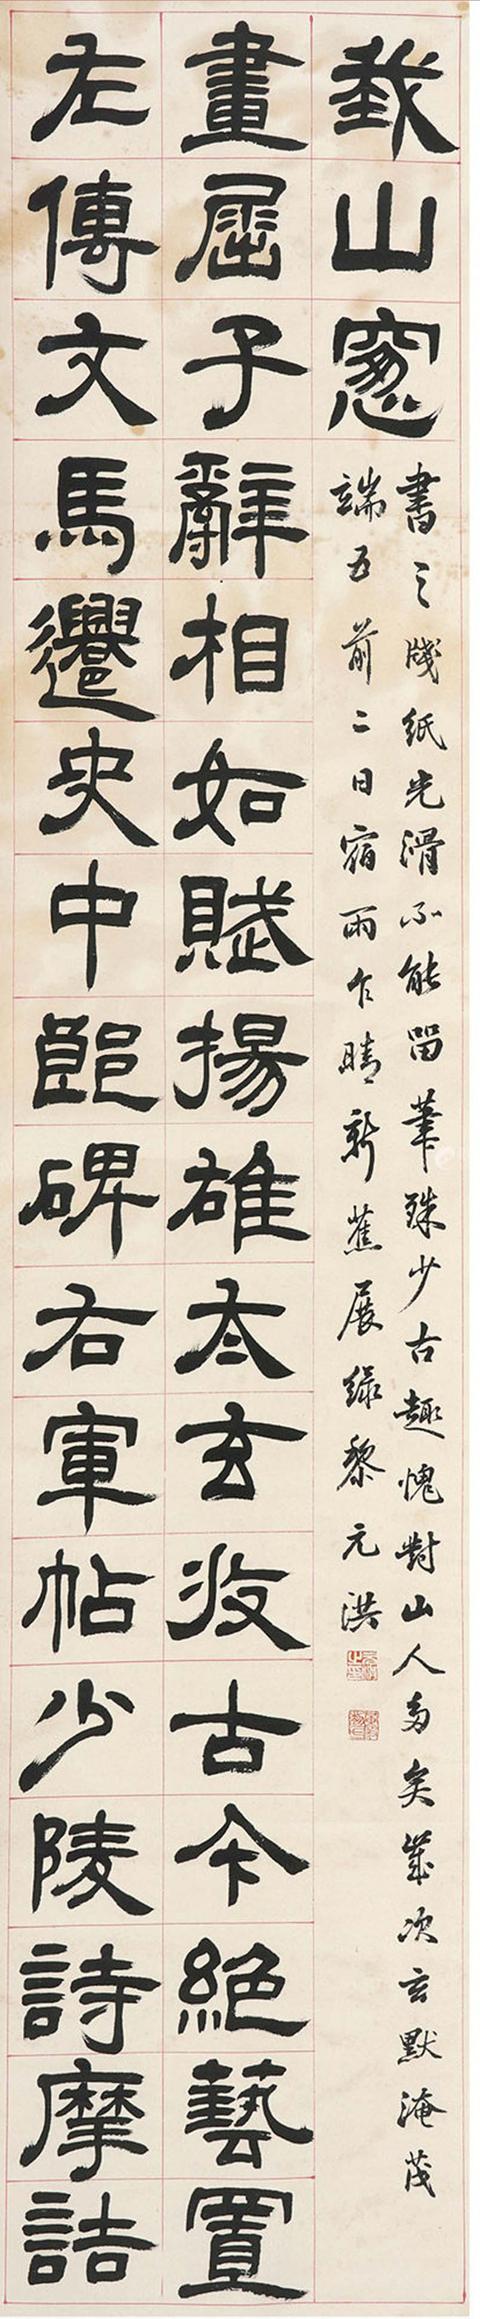 左傳文馬遷史中郎碑右軍帖少陵詩摩詰
畫屈子辭相如賦揚雄太玄收古今絕藝置
我山窻
書之牋紙光滑不能留筆殊少古趣愧對山人多矣歲次玄默淹茂
端五前二日宿雨乍晴新蕉展綠黎元洪